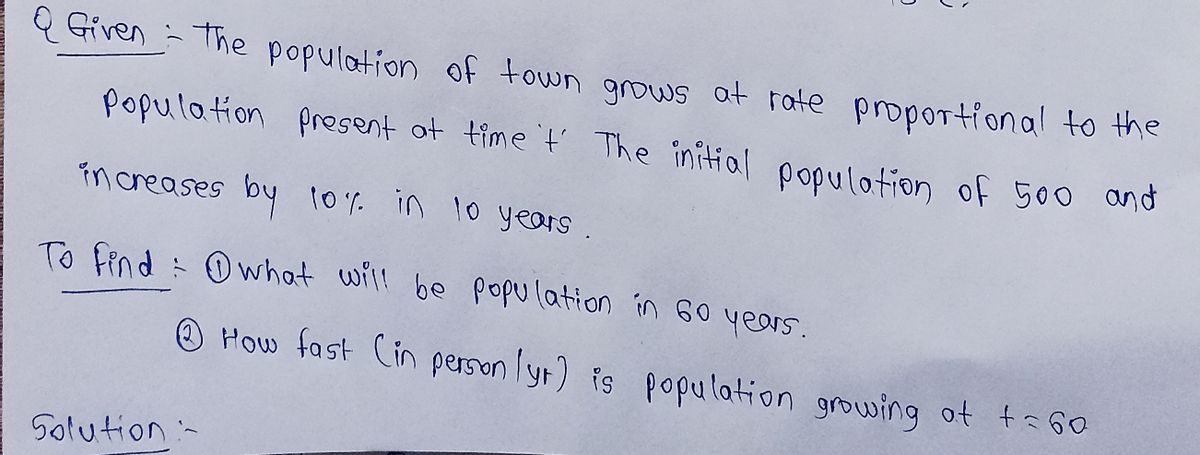 Q Given :- The population of town grows at rate proportional to the
population present at time 't' The initial population of 500 and
increases by 10% in 10 years.
To find :- ① what will be population in 60 years.
② How fast (in person/yr) is population growing at t=60
Solution :-